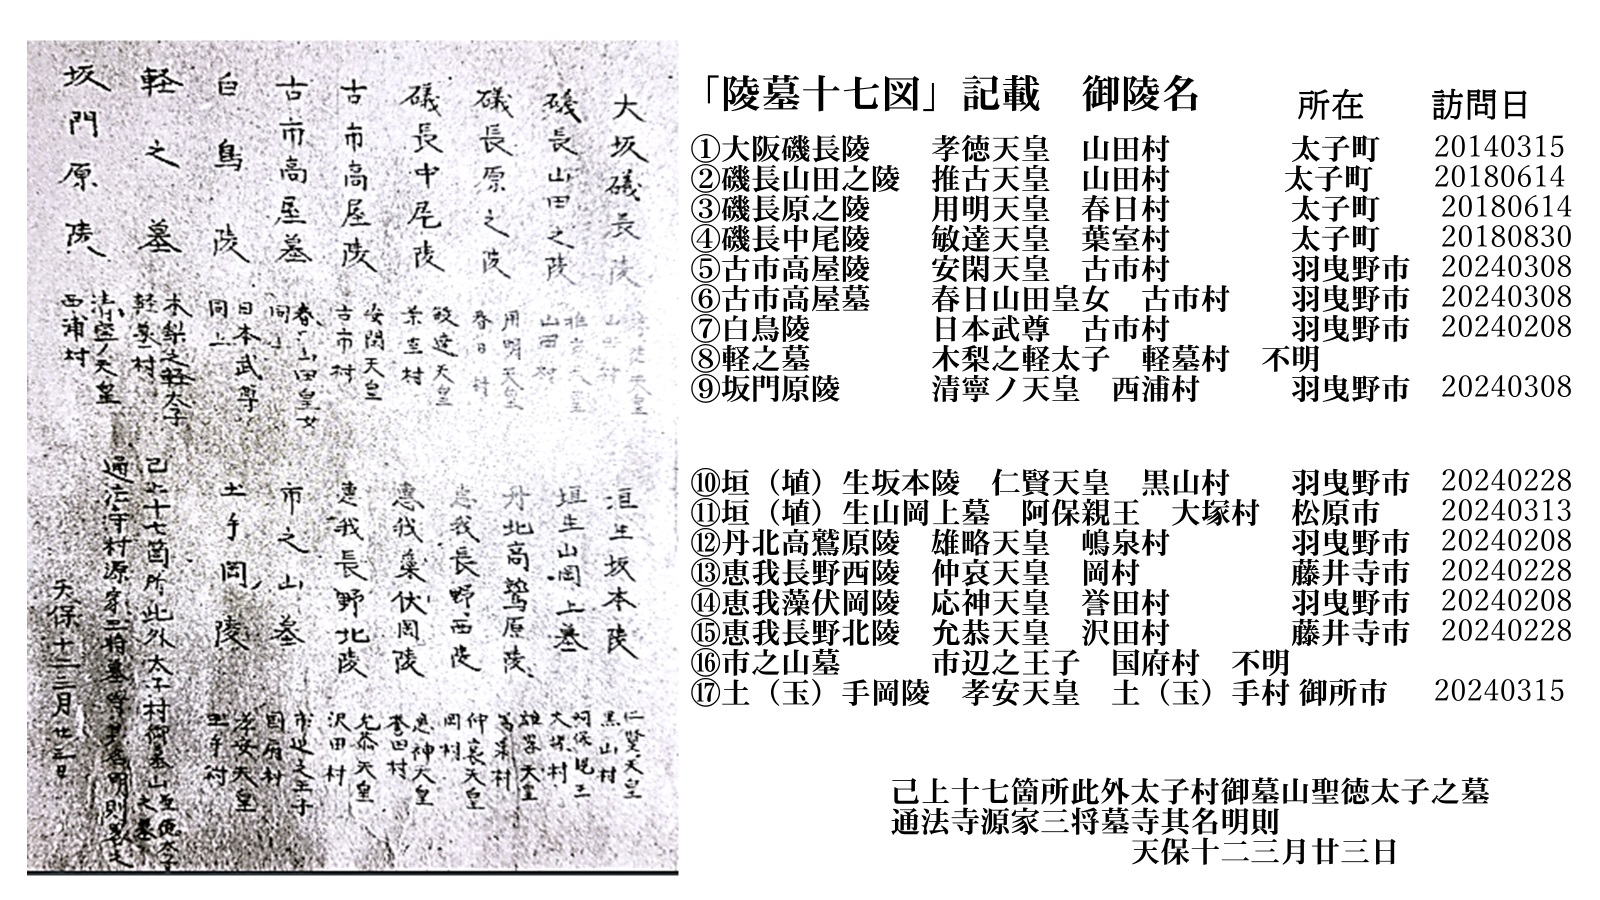 大坂磯長陵
磯長山田之陵
磯長原之陵
磯長中尾陵
古市高屋陵
古市高屋墓
白鳥陵
軽之墓
坂門原陵
推古天皇
山田村
用明天皇
春日村
敏達天皇
葉室村
安閑天皇
古市村
春日山田皇女
同上
日本武尊
同上
木梨之軽太子
軽墓村
清寧ノ天皇
西浦村
垣生坂本陵
垣生山岡上墓
丹北高鷲原陵
恵我長野西陵
恵我藻伏岡陵
恵我長野北陵
市之山墓
土手岡陵
仁賢天皇
黒山村
阿保親王
大塚村
雄略天皇
仲哀天皇
岡村
応神天皇
誉田村
允恭天皇
沢田村
市辺之王子
国府村
孝安天皇
土手村
己上十七箇所此外太子村御墓山聖徳太子之墓
通法寺村源家三将墓寺其名明則
天保十二三月廿三日
「陵墓十七図」記載　御陵名　所在　訪問日
①大阪磯長陵　孝徳天皇　山田村　太子町　20140315
②磯長山田之陵　推古天皇　山田村　太子町　20180614
③磯長原之陵　用明天皇　春日村　太子町　20180614
④磯長中尾陵　敏達天皇　葉室村　太子町　20180830
⑤古市高屋陵　安閑天皇　古市村　羽曳野市　20240308
⑥古市高屋墓　春日山田皇女　古市村　羽曳野市　20240308
⑦白鳥陵　日本武尊　古市村　羽曳野市　20240208
⑧軽之墓　木梨之軽太子　軽墓村　不明
⑨坂門原陵　清寧ノ天皇　西浦村　羽曳野市　20240308
⑩垣（埴）生坂本陵　仁賢天皇　黒山村　羽曳野市　20240228
⑪垣（埴）生山岡上墓　阿保親王　大塚村　松原市　20240313
⑫丹北高鷲原陵　雄略天皇　嶋泉村　羽曳野市　20240208
⑬恵我長野西陵　仲哀天皇　岡村　藤井寺市　20240228
⑭恵我藻伏岡陵　応神天皇　誉田村　羽曳野市　20240208
⑮恵我長野北陵　允恭天皇　沢田村　藤井寺市　20240228
⑯市之山墓　市辺之王子　国府村　不明
⑰土（玉）手岡陵　孝安天皇　土（玉）手村　御所市　20240315
己上十七箇所此外太子村御墓山聖徳太子之墓
通法寺源家三将墓寺其名明則
天保十二三月廿三日